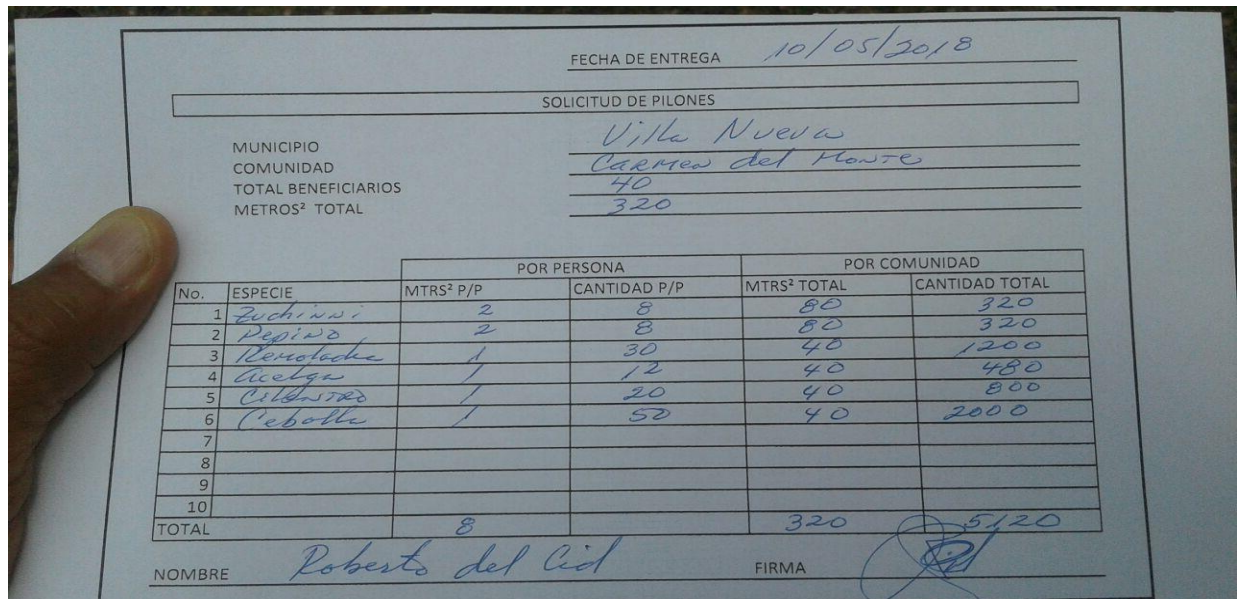 FECHA DE ENTREGA 10/05/2018
SOLICITUD DE PILONES
MUNICIPIO Villa Nueva
COMUNIDAD Carmen del Monte
TOTAL BENEFICIARIOS 40
METROS² TOTAL 320
POR PERSONA POR COMUNIDAD
No. ESPECIE MTRS² P/P CANTIDAD P/P MTRS² TOTAL CANTIDAD TOTAL
1 Zuchinni 2 8 80 320
2 Pepino 2 8 80 320
3 Remolacha 1 30 40 1200
4 acelga 1 12 40 480
5 Cilantro 1 20 40 800
6 Cebolla 1 50 40 2000
7
8
9
10
TOTAL 8 320 5,120
NOMBRE Roberto del Cid FIRMA